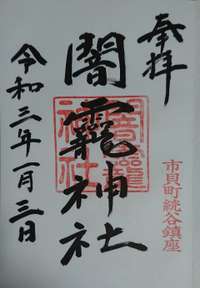 奉拝
市貝町続谷鎮座
闇龗神社
令和三年一月三日